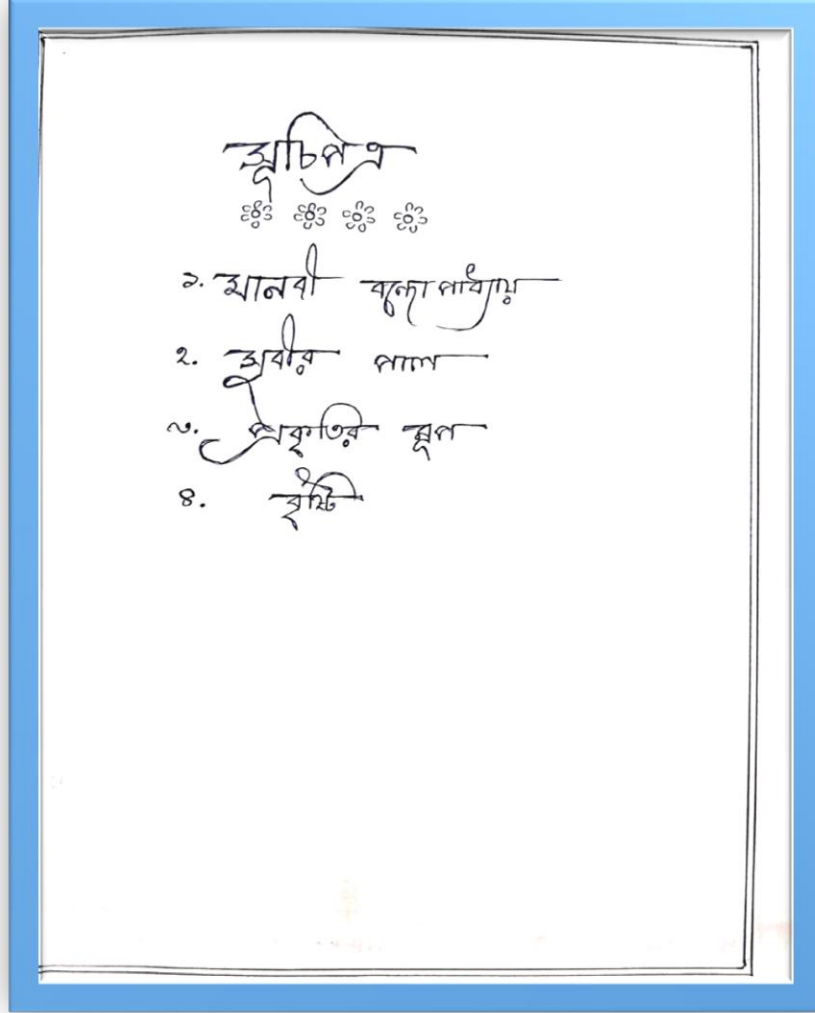 সূচিপত্র
১. মানবী বন্দোপাধ্যায়
২. সুবীর পাল
৩. প্রকৃতির রূপ
৪. বৃষ্টি